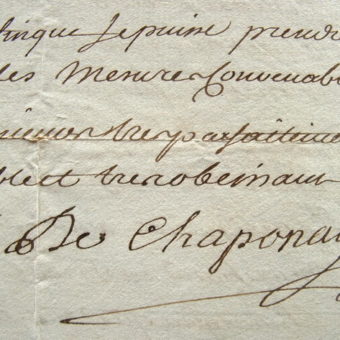 je puise prendre
les Mesures Convenab
tres parfaitem
et tres obeissant
De Chaponay